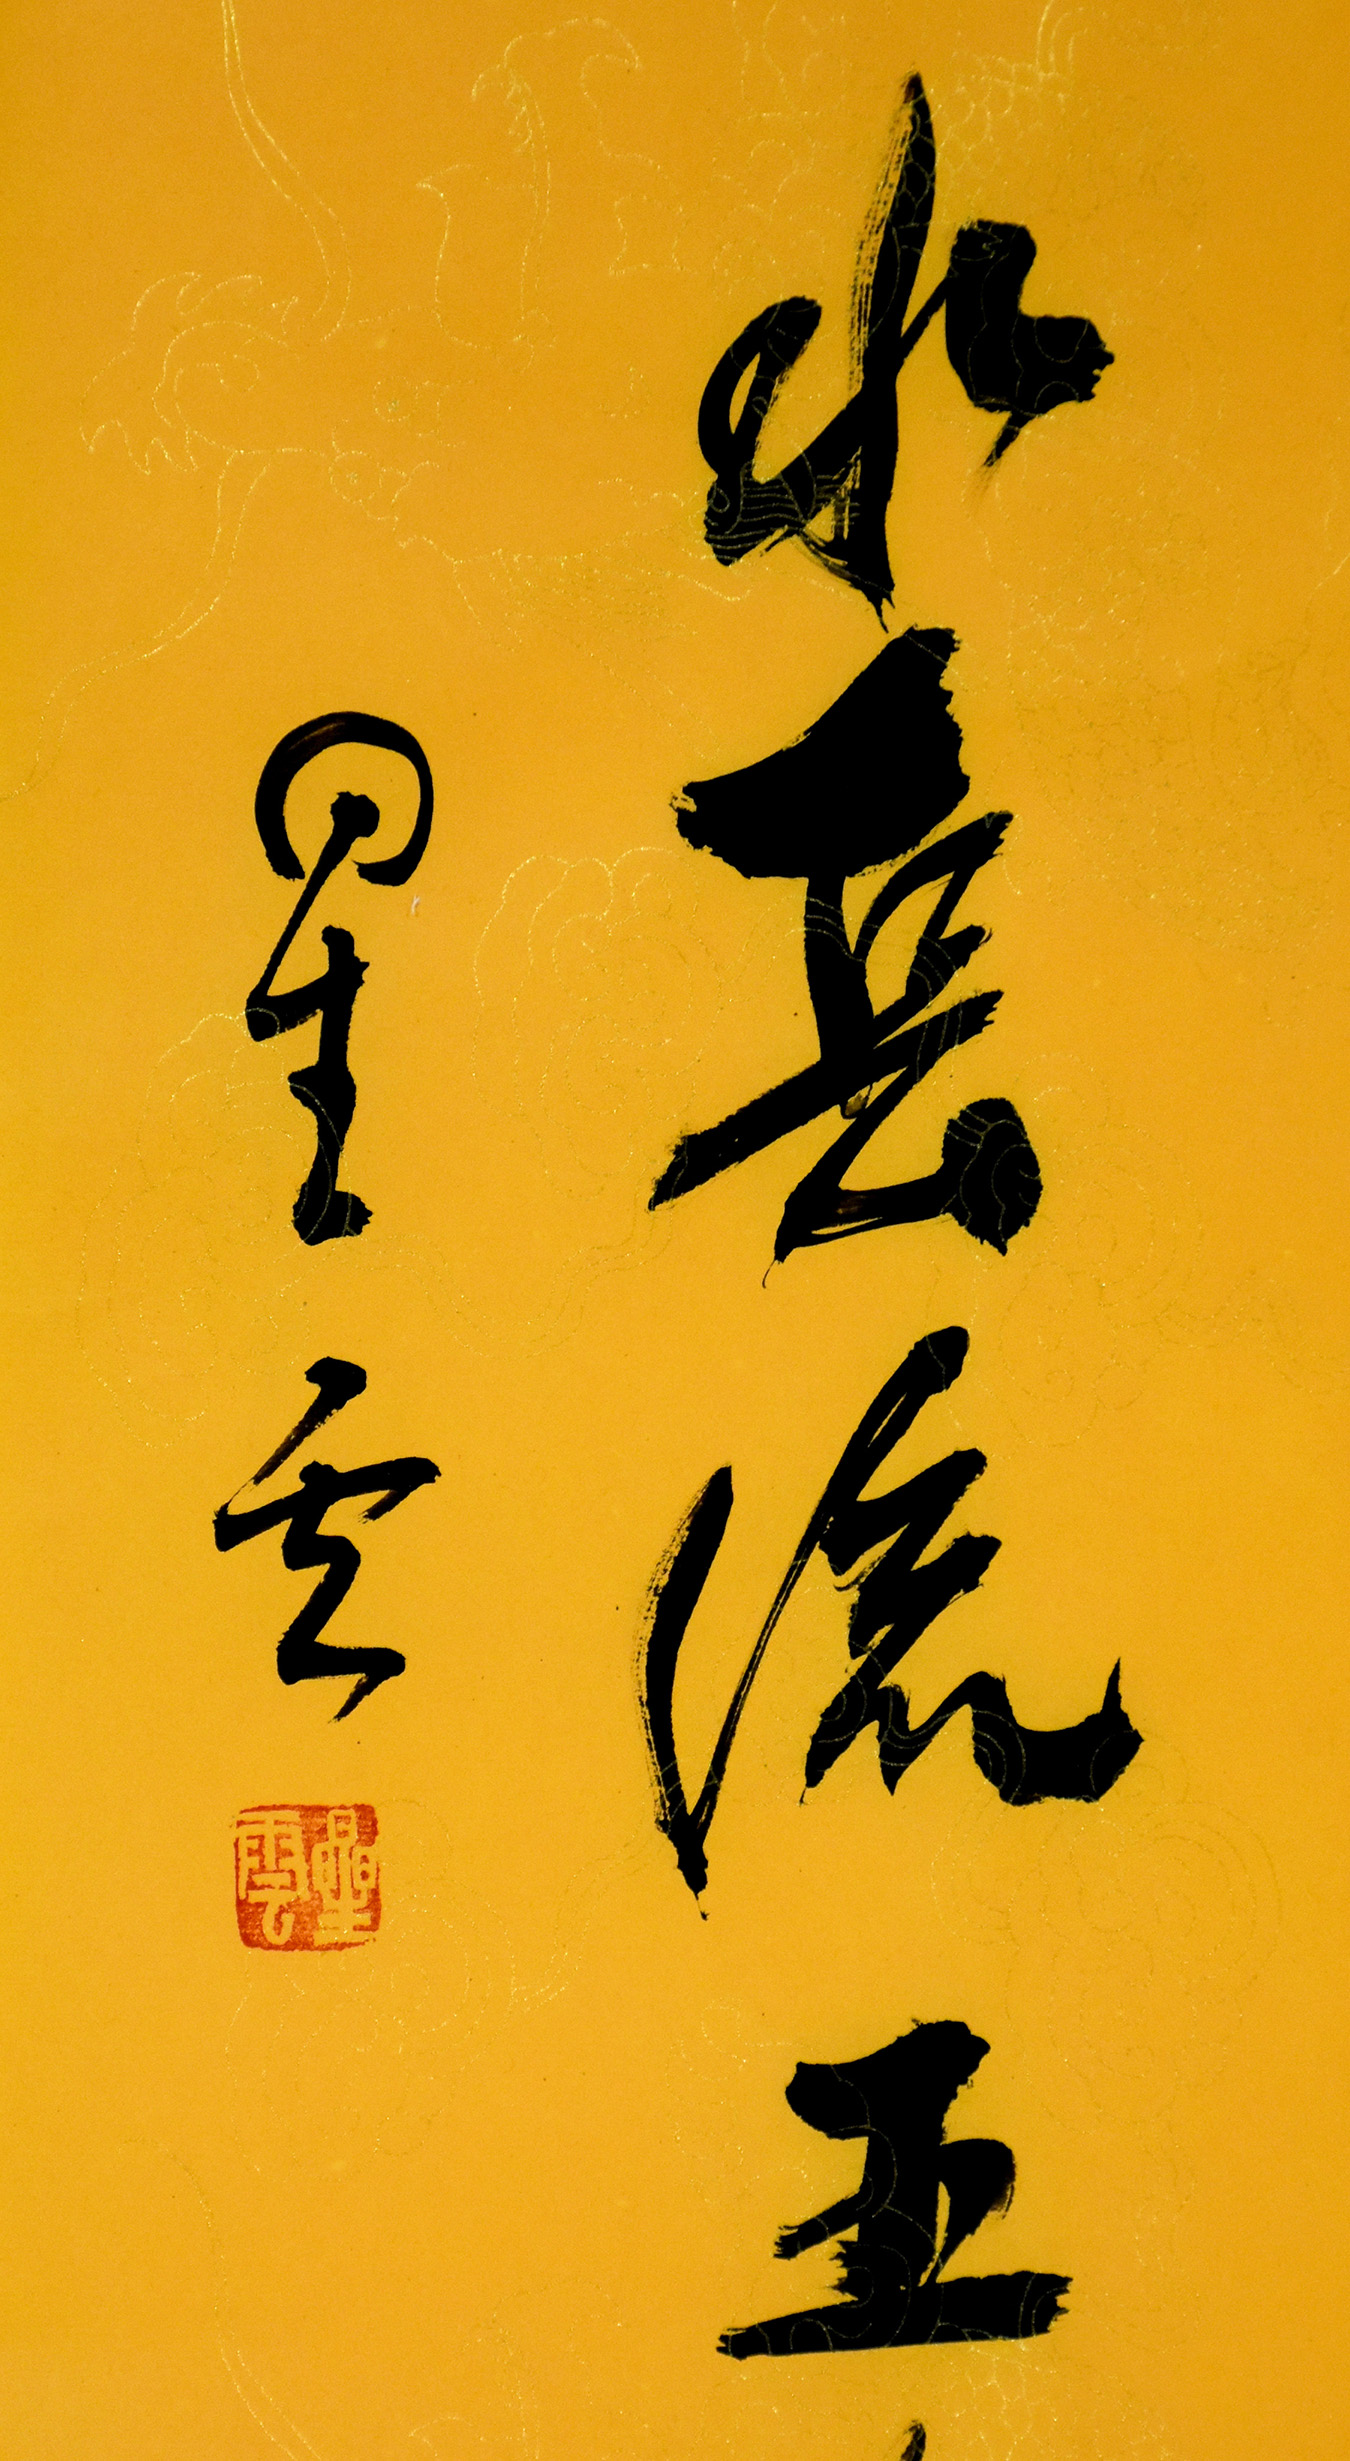 水長流五
星雲
星雲